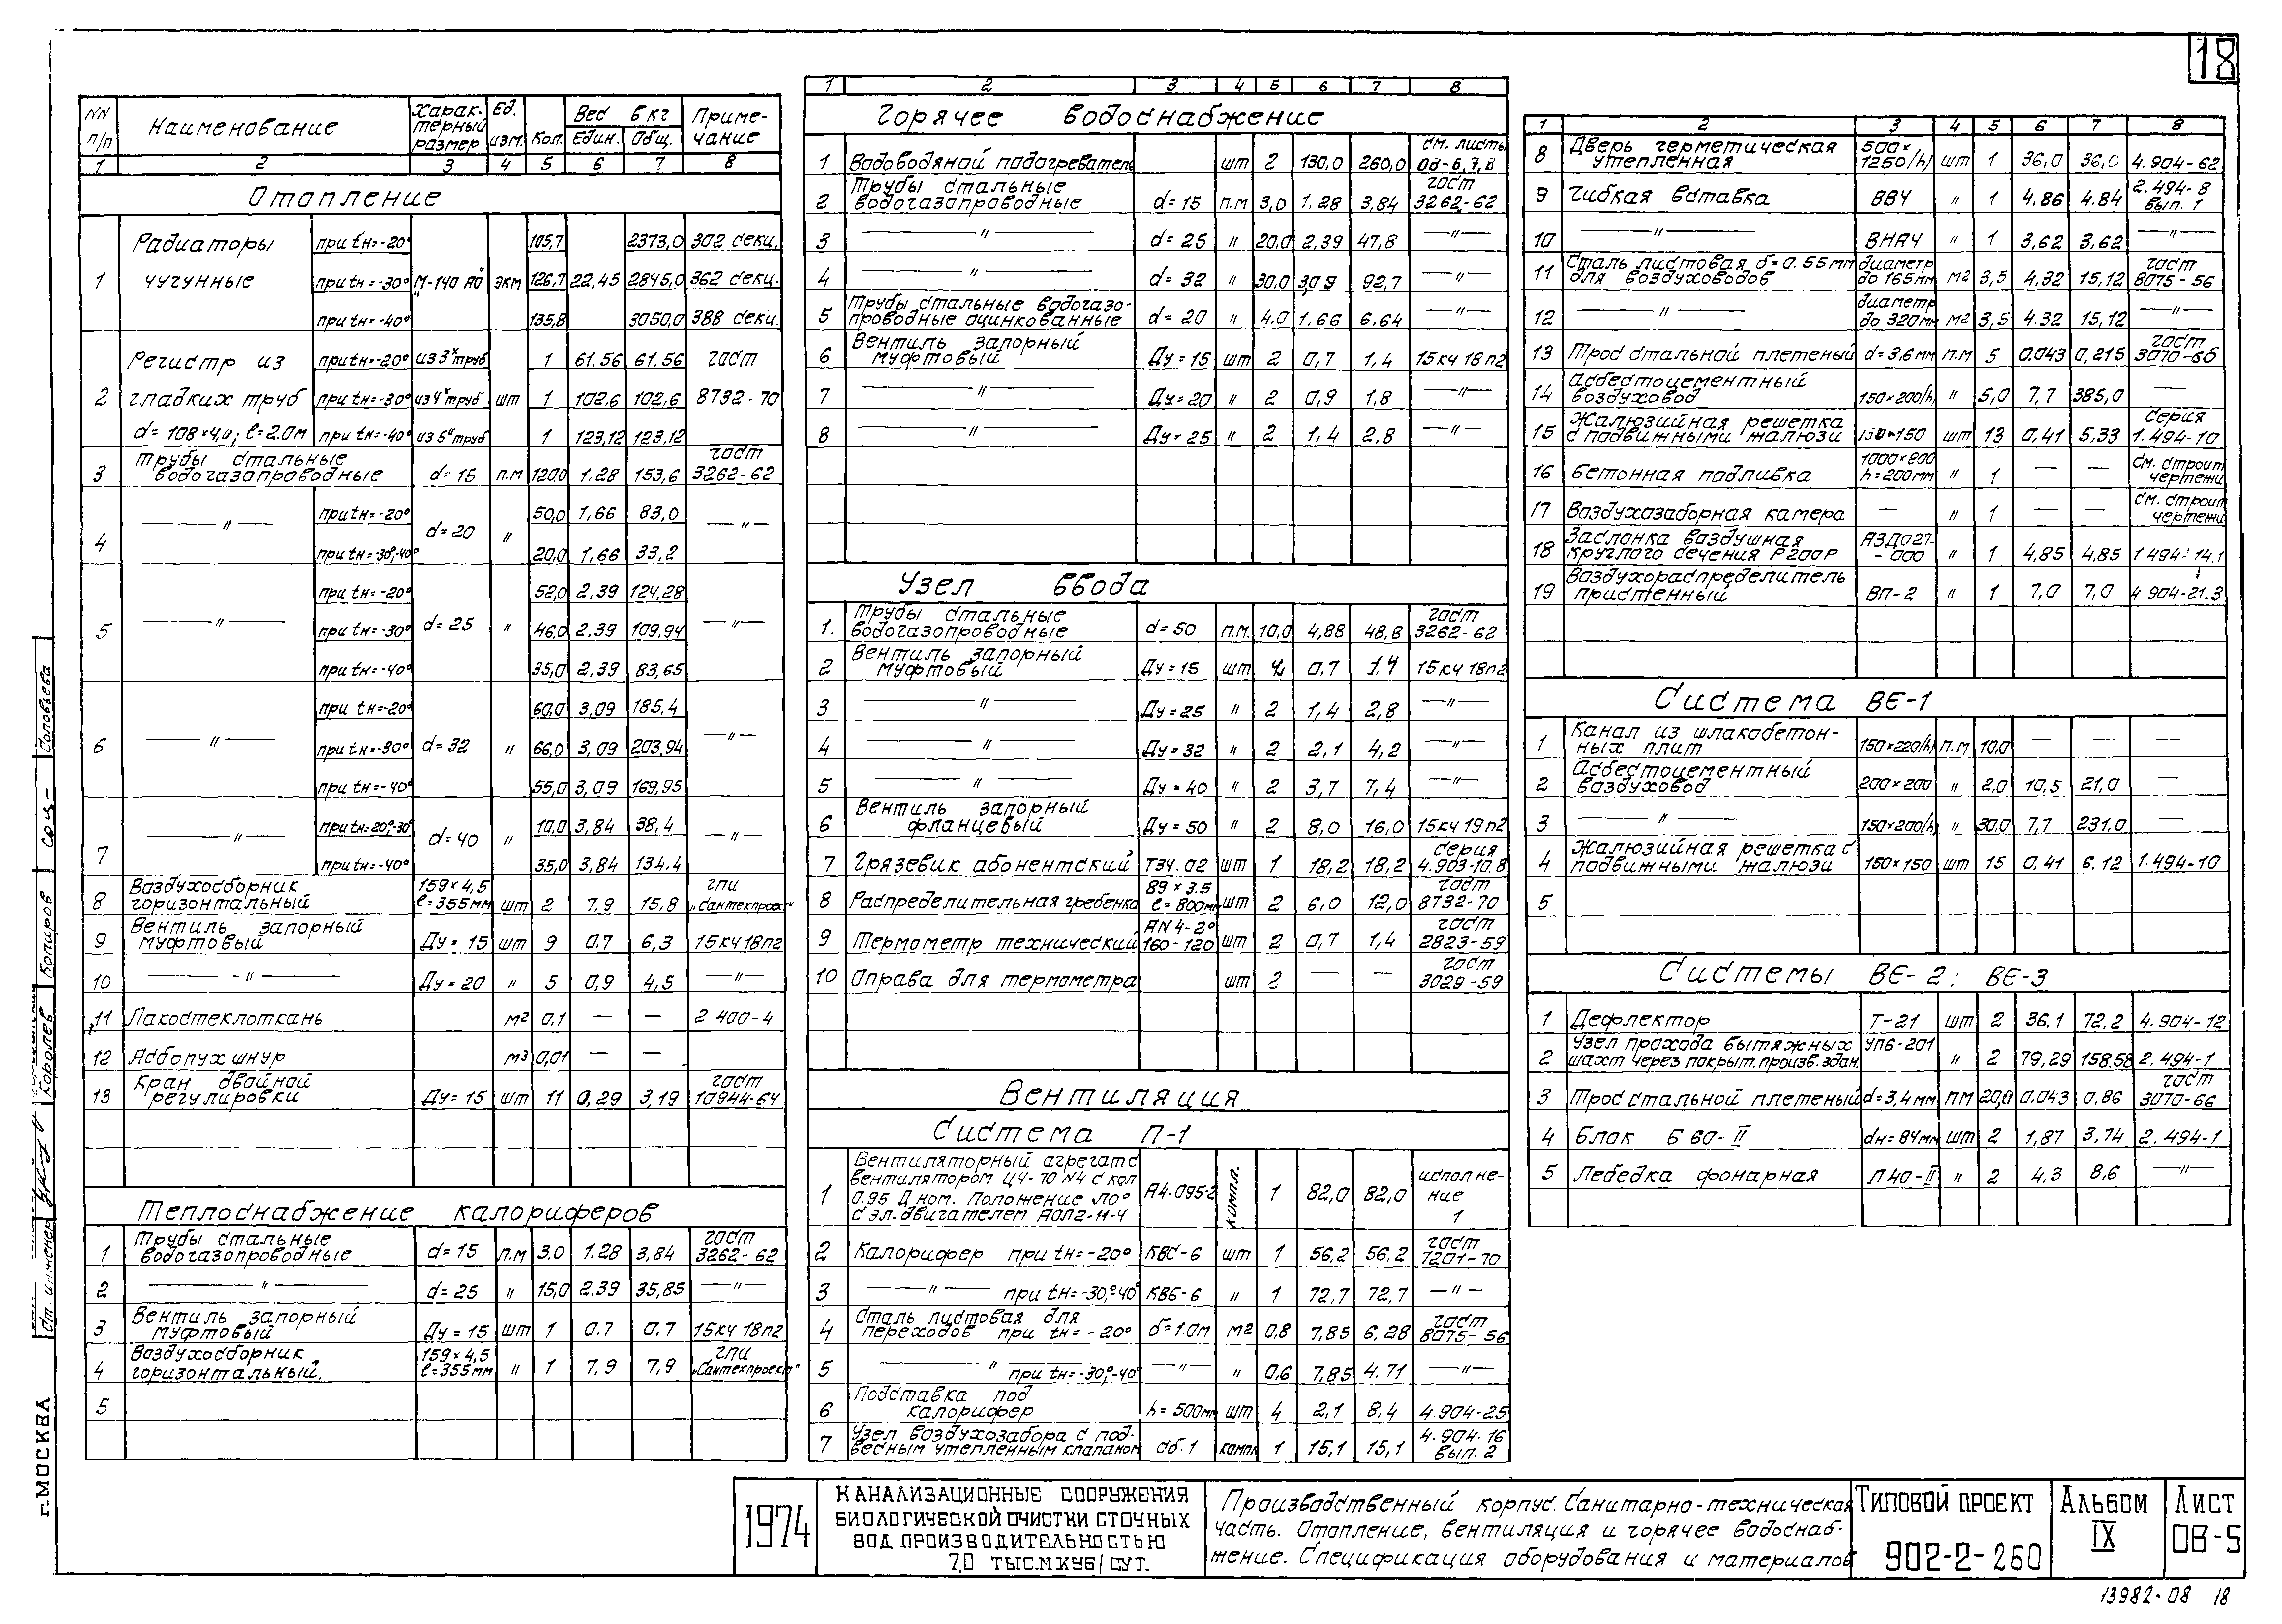 18
NN п/п Наименование Характерный размер Ед. изм. Кол. Вес в кг Един. Общ. Примечание
1 2 3 4 5 6 7 8
Отопление
1 Радиаторы чугунные при tн=-20° 105,7 2373,0 302 секц.
при tн=-30° М-140 АО экм 126,7 22,45 2845,0 362 секц.
при tн=-40° 135,8 3050,0 388 секц.
2 Регистр из гладких труб d=108×4,0; ℓ=2.0м при tн=-20° из 3х труб 1 61.56 61.56 гост
при tн=-30° из 4х труб шт 1 102,6 102,6 8732-70
при tн=-40° из 5и труб 1 123,12 123,12
3 Трубы стальные водогазопроводные d=15 п.м 120,0 1.28 153,6 гост 3262-62
4 —〃— при tн=-20° d=20 〃 50,0 1,66 83,0 —〃—
при tн=-30°,-40° 20,0 1,66 33,2
5 —〃— при tн=-20° 52,0 2.39 124,28
при tн=-30° d=25 〃 46,0 2.39 109,94 —〃—
при tн=-40° 35,0 2.39 83,65
6 —〃— при tн=-20° 60,0 3,09 185,4
при tн=-30° d=32 〃 66,0 3,09 203,94 —〃—
при tн=-40° 55,0 3,09 169,95
7 —〃— при tн=20°,-30° d=40 〃 10,0 3,84 38,4 —〃—
при tн=-40° 35,0 3,84 134,4
8 Воздухосборник горизонтальный 159×4,5 ℓ=355мм шт 2 7,9 15,8 гпи „Сантехпроект"
9 Вентиль запорный муфтовый Ду=15 шт 9 0.7 6,3 15кч18п2
10 —〃— Ду=20 〃 5 0,9 4,5 —〃—
11 Лакостеклоткань м2 0,1 — — 2 400-4
12 Асбопух шнур м3 0,01 — —
13 Кран двойной регулировки Ду=15 шт 11 0,29 3,19 гост 10944-64
Теплоснабжение калориферов
1 Трубы стальные водогазопроводные d=15 п.м 3.0 1.28 3,84 гост 3262-62
2 —〃— d=25 〃 15,0 2.39 35,85 —〃—
3 Вентиль запорный муфтовый Ду=15 шт 1 0.7 0.7 15кч18п2
4 Воздухосборник горизонтальный. 159×4,5 ℓ=355мм 〃 1 7,9 7,9 гпи „Сантехпроект"
5
1 2 3 4 5 6 7 8
Горячее водоснабжение
1 Водоводяной подогреватель шт 2 130,0 260,0 см. листы ОВ-6,7,8
2 Трубы стальные водогазопроводные d=15 п.м 3,0 1.28 3,84 гост 3262-62
3 —〃— d=25 〃 20,0 2,39 47,8 —〃—
4 —〃— d=32 〃 30,0 3,09 92,7 —〃—
5 Трубы стальные водогазопроводные оцинкованные d=20 〃 4,0 1,66 6,64 —〃—
6 Вентиль запорный муфтовый Ду=15 шт 2 0,7 1,4 15кч18п2
7 —〃— Ду=20 〃 2 0,9 1,8 —〃—
8 —〃— Ду=25 〃 2 1,4 2,8 —〃—
Узел ввода
1. Трубы стальные водогазопроводные d=50 п.м. 10,0 4,88 48,8 гост 3262-62
2 Вентиль запорный муфтовый Ду=15 шт 2 0,7 1.4 15кч18п2
3 —〃— Ду=25 〃 2 1,4 2,8 —〃—
4 —〃— Ду=32 〃 2 2,1 4,2 —〃—
5 —〃— Ду=40 〃 2 3,7 7,4 —〃—
6 Вентиль запорный фланцевый Ду=50 〃 2 8,0 16,0 15кч19п2
7 Грязевик абонентский ТЗ4.02 шт 1 18,2 18,2 серия 4.903-10.8
8 Распределительная гребенка 89×3.5 ℓ=800мм шт 2 6,0 12,0 гост 8732-70
9 Термометр технический АN4-2° 160-120 шт 2 0,7 1,4 гост 2823-59
10 Оправа для термометра шт 2 — — гост 3029-59
Вентиляция
Система П-1
1 Вентиляторный агрегат с вентилятором Ц4-70 N4 с кол 0.95 Д ном. Положение ЛО° с эл.двигателем АОЛ2-11-4 А4.095-2 компл. 1 82,0 82,0 исполнение 1
2 Калорифер при tн=-20° КВС-6 шт 1 56,2 56,2 гост 7201-70
3 —〃— при tн=-30°,-40° КВБ-6 〃 1 72,7 72,7 —〃—
4 Сталь листовая для переходов при tн=-20° δ=1.0м м2 0,8 7,85 6,28 гост 8075-56
5 —〃— при tн=-30°,-40° —〃— 〃 0,6 7.85 4,71 —〃—
6 Подставка под калорифер h=500мм шт 4 2,1 8,4 4.904-25
7 Узел воздухозабора с подвесным утепленным клапаном сб.1 компл 1 15,1 15,1 4.904.16 вып.2
1 2 3 4 5 6 7 8
8 Дверь герметическая утепленная 500×1250/h/ шт 1 36,0 36,0 4.904-62
9 Гибкая вставка ВВ4 〃 1 4,86 4.84 2.494-8 вып. 1
10 —〃— ВНА4 〃 1 3,62 3,62 —〃—
11 Сталь листовая δ=0.55мм для воздуховодов диаметр до 165мм м2 3,5 4.32 15,12 гост 8075-56
12 —〃— диаметр до 320мм м2 3,5 4.32 15,12 —〃—
13 Трос стальной плетеный d=3,6мм п.м 5 0.043 0,215 гост 3070-66
14 Асбестоцементный воздуховод 150×200/h/ 〃 5,0 7,7 385,0 —
15 Жалюзийная решетка с подвижными жалюзи 150×150 шт 13 0,41 5,33 серия 1.494-10
16 Бетонная подливка 1000×800 h=200мм 〃 1 — — см. строит чертежи
17 Воздухозаборная камера — 〃 1 — — см. строит чертежи
18 Заслонка воздушная круглого сечения Р200Р АЗД027-000 〃 1 4,85 4,85 1 494-14.1
19 Воздухораспределитель пристенный ВП-2 〃 1 7,0 7,0 4 904-21.3
Система ВЕ-1
1 Канал из шлакобетонных плит 150×220/h/ п.м 10,0 — — —
2 Асбестоцементный воздуховод 200×200 〃 2,0 10,5 21,0 —
3 —〃— 150×200/h/ 〃 30,0 7,7 231.0 —
4 Жалюзийная решетка с подвижными жалюзи 150×150 шт 15 0,41 6.12 1.494-10
5
Системы ВЕ-2; ВЕ-3
1 Дефлектор Т-21 шт 2 36,1 72.2 4.904-12
2 Узел прохода вытяжных шахт через покрыт. произв. здан. УП6-201 〃 2 79,29 158.58 2.494-1
3 Трос стальной плетеный d=3,4мм пм 20,0 0.043 0,86 гост 3070-66
4 Блок Б 60-II dн=84мм шт 2 1,87 3,74 2.494-1
5 Лебедка фонарная Л40-II 〃 2 4,3 8,6 —〃—
г. МОСКВА
Ст. инженер Королев Копиров Соловьева
1974
КАНАЛИЗАЦИОННЫЕ СООРУЖЕНИЯ
БИОЛОГИЧЕСКОЙ ОЧИСТКИ СТОЧНЫХ
ВОД ПРОИЗВОДИТЕЛЬНОСТЬЮ
7,0 ТЫС.М.КУБ/СУТ.
Производственный корпус. Санитарно-техническая
часть. Отопление, вентиляция и горячее водоснаб-
жение. Спецификация оборудования и материалов
ТИПОВОЙ ПРОЕКТ
902-2-260
АЛЬБОМ
IX
ЛИСТ
ОВ-5
13982-08 18